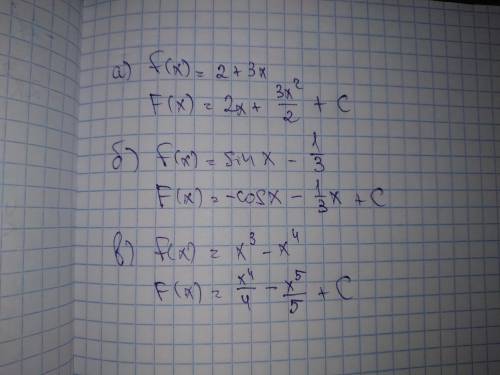 а) f(x) = 2 + 3x
F(x) = 2x + 3x²/2 + C
б) f(x) = sin x - 1/3
F(x) = -cos x - 1/3 x + C
в) f(x) = x³ - x⁴
F(x) = x⁴/4 - x⁵/5 + C